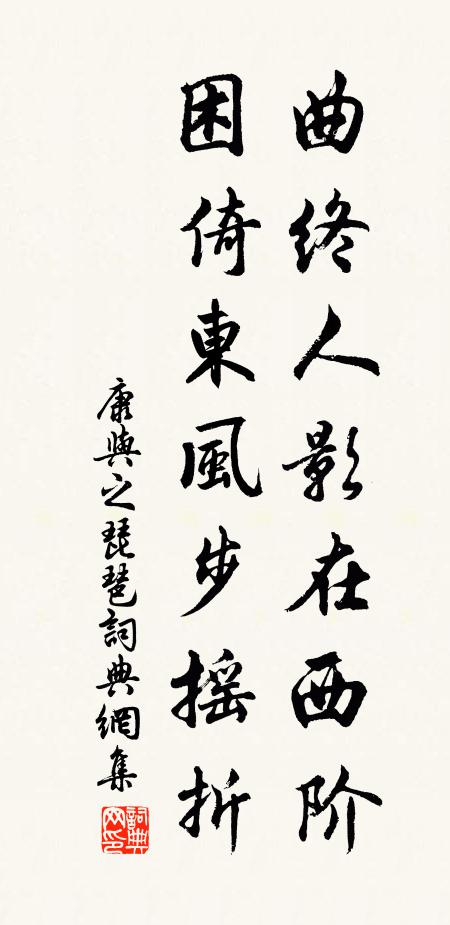 曲终人影在西阶
困倚東風步摇折
康與之琵琶詞典網集
詞典网印